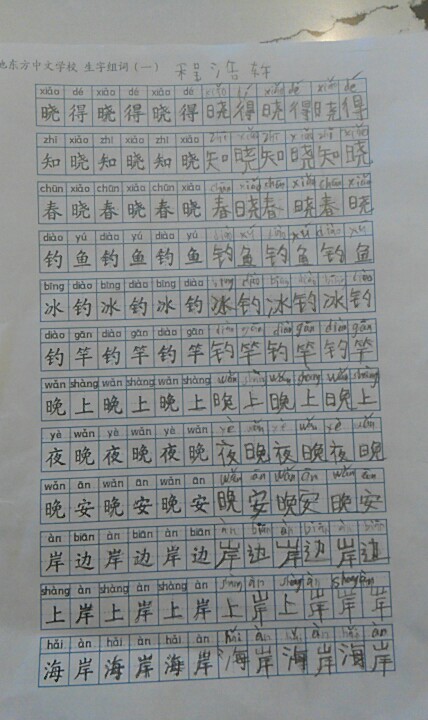 地东方中文学校 生字组词（一） 程浩轩
xiǎo dé xiǎo dé xiǎo dé xiǎo dé xiǎo dé xiǎo dé
晓得晓得晓得晓得晓得晓得
zhī xiǎo zhī xiǎo zhī xiǎo zhī xiǎo zhī xiǎo zhī xiǎo
知晓知晓知晓知晓知晓知晓
chūn xiǎo chūn xiǎo chūn xiǎo chūn xiǎo chūn xiǎo chūn xiǎo
春晓春晓春晓春晓春晓春晓
diào yú diào yú diào yú
钓鱼钓鱼钓鱼钓鱼钓鱼钓鱼
bīng diào bīng diào bīng diào
冰钓冰钓冰钓冰钓冰钓冰钓
diào gān diào gān diào gān diào gān diào gān diào gān
钓竿钓竿钓竿钓竿钓竿钓竿
wǎn shàng wǎn shàng wǎn shàng wǎn shàng wǎn shàng wǎn shàng
晚上晚上晚上晚上晚上晚上
yè wǎn yè wǎn yè wǎn yè wǎn yè wǎn yè wǎn
夜晚夜晚夜晚夜晚夜晚夜晚
wǎn ān wǎn ān wǎn ān wǎn ān wǎn ān wǎn ān
晚安晚安晚安晚安晚安晚安
àn biān àn biān àn biān àn biān àn biān àn biān
岸边岸边岸边岸边岸边岸边
shàng àn shàng àn shàng àn shàng àn shàng àn shàng àn
上岸上岸上岸上岸上岸岸岸
hǎi àn hǎi àn hǎi àn hǎi àn hǎi àn hǎi àn
海岸海岸海岸海岸海岸海岸